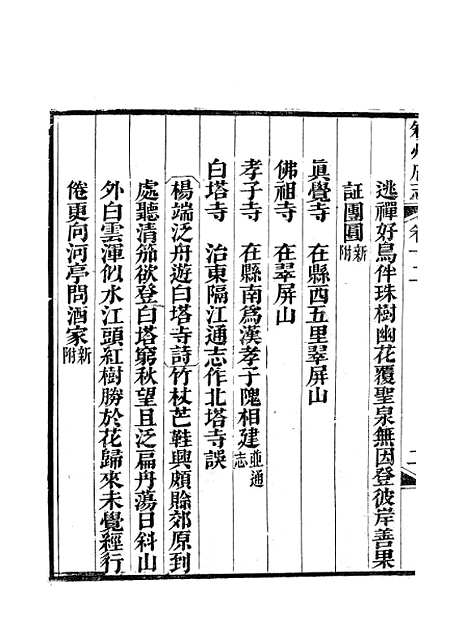 叙州府志 卷十二 二
逃禪好鳥伴珠樹幽花覆聖泉無因登彼岸善果
証團圓新附
眞覺寺 在縣西五里翠屏山
佛祖寺 在翠屏山
孝子寺 在縣南爲漢孝子隗相建並通志
白塔寺 治東隔江通志作北塔寺誤
楊端泛舟遊白塔寺詩竹杖芒鞋興頗賒郊原到
處聽清笳欲登白塔窮秋望且泛扁舟蕩日斜山
外白雲渾似水江頭紅樹勝於花歸來未覺經行
倦更向河亭問酒家新附